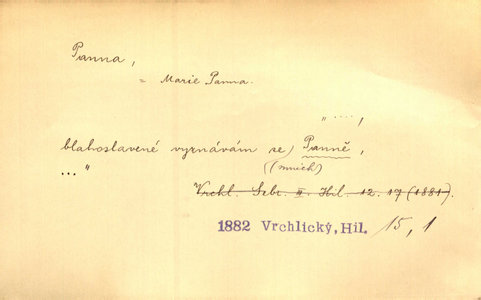 Panna,
= Marie Panna.
„ ....,
blahoslavené vyznávám se) Panně,
(mnich)
... "
Vrchl. Sebr. II. Hil. 12. 17 (1881).
1882 Vrchlický, Hil. 15, 1